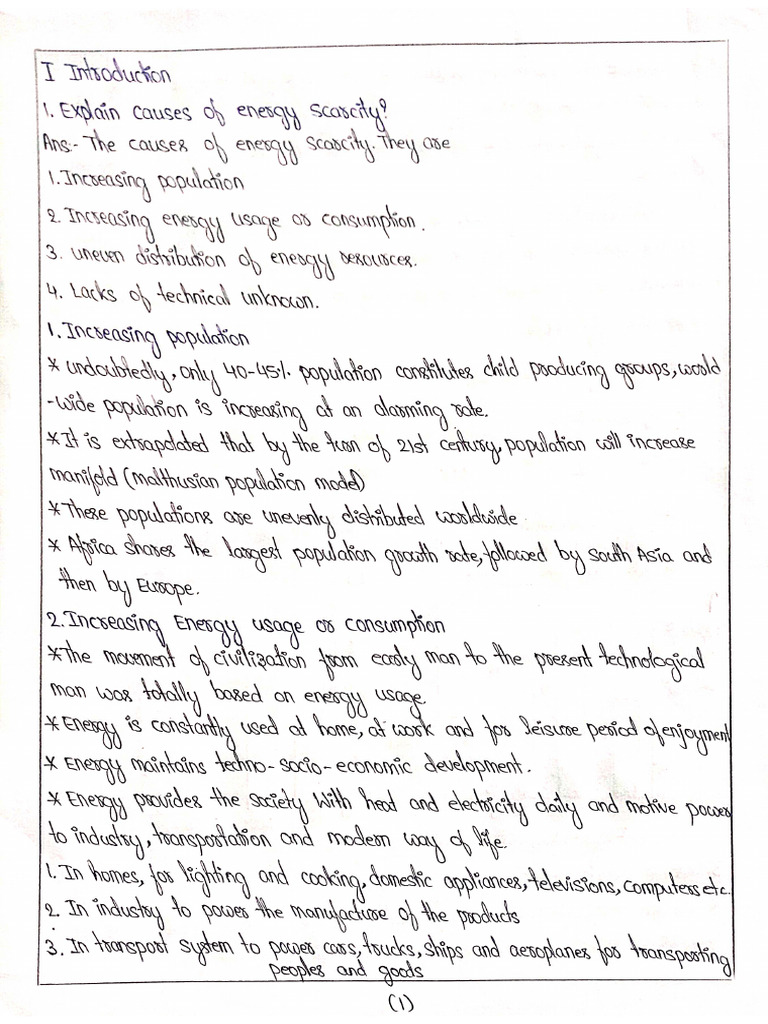 I Introduction
1. Explain causes of energy scarcity?
Ans:- The causes of energy scarcity. They are
1. Increasing population
2. Increasing energy usage or consumption.
3. uneven distribution of energy resources.
4. Lacks of technical unknown.
1. Increasing population
* undoubtedly, only 40-45% population constitutes child producing groups, world
-wide population is increasing at an alarming rate.
* It is extrapolated that by the turn of 21st century, population will increase
manifold (malthusian population model)
* These populations are unevenly distributed worldwide
* Africa shares the largest population growth rate, followed by south Asia and
then by Europe.
2. Increasing Energy usage or consumption
* The movement of civilization from early man to the present technological
man was totally based on energy usage.
* Energy is constantly used at home, at work and for leisure period of enjoyment
* Energy maintains techno-socio-economic development.
* Energy provides the society with heat and electricity daily and motive power
to industry, transportation and modern way of life.
1. In homes, for lighting and cooking, domestic appliances, televisions, computers etc.
2. In industry to power the manufacture of the products
3. In transport system to power cars, trucks, ships and aeroplanes for transporting
peoples and goods
(1)